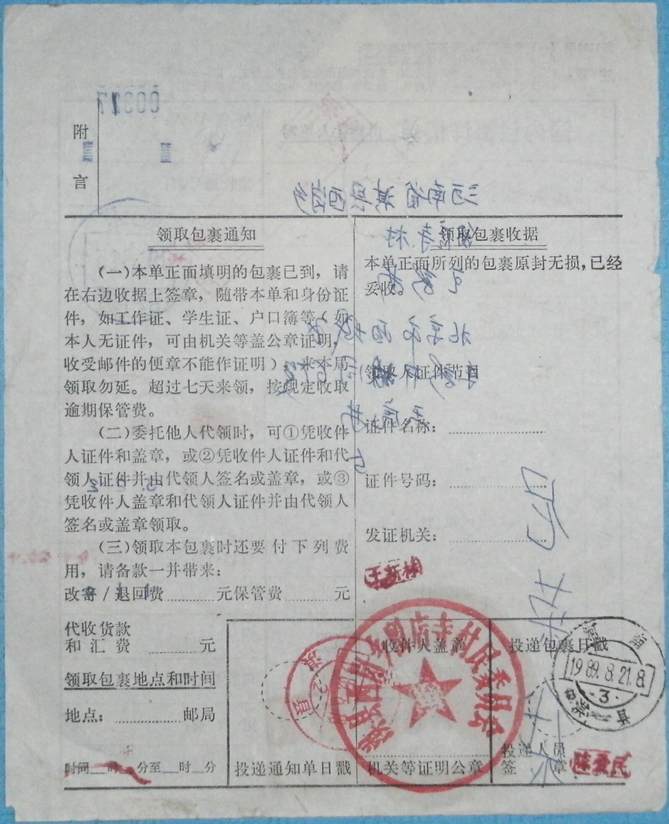 附
言
领取包裹通知
(一)本单正面填明的包裹已到，请
在右边收据上签章，随带本单和身份证
件，如工作证、学生证、户口簿等(如
本人无证件，可由机关等盖公章证明，
收受邮件的便章不能作证明)，来本局
领取勿延。超过七天来领，按规定收取
逾期保管费。
(二)委托他人代领时，可①凭收件
人证件和盖章，或②凭收件人证件和代
领人证件并由代领人签名或盖章，或③
凭收件人盖章和代领人证件并由代领人
签名或盖章领取。
(三)领取本包裹时还要付下列费
用，请备款一并带来：
改寄/退回费 元保管费 元
代收货款
和汇费 元
领取包裹地点和时间
地点： 邮局
时间 时 分至 时 分
领取包裹收据
本单正面所列的包裹原封无损，已经
妥收。
领取人证件节目
证件名称：
证件号码：
发证机关：
收件人盖章
投递包裹日戳
1989.8.21.8
3
投递通知单日戳
机关等证明公章
投递人员
签 章